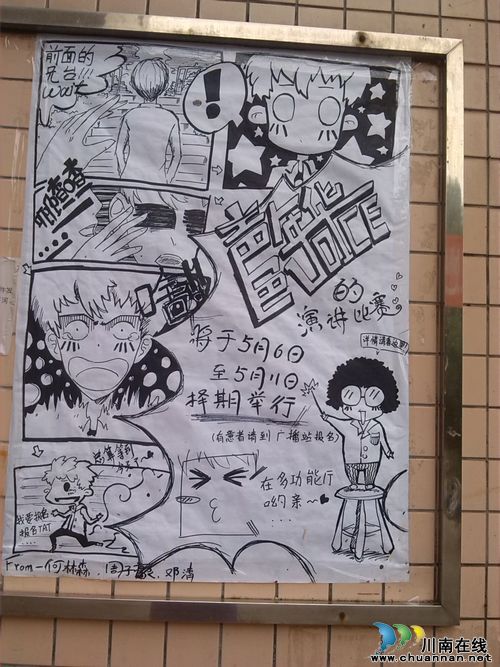 前面的
兄台!!!
wait
!
啪喳喳
....
嘉年华
VOICE
的
演讲比赛
详情请看这里
将于5月6日
至5月11日
择期举行
(有意者请到广播站报名)
总算等到
今天了
我要报名
报名TAT
在多功能厅
哟亲~
From—何林森、周子豪、邓涛
川南在线
www.chuannan.net